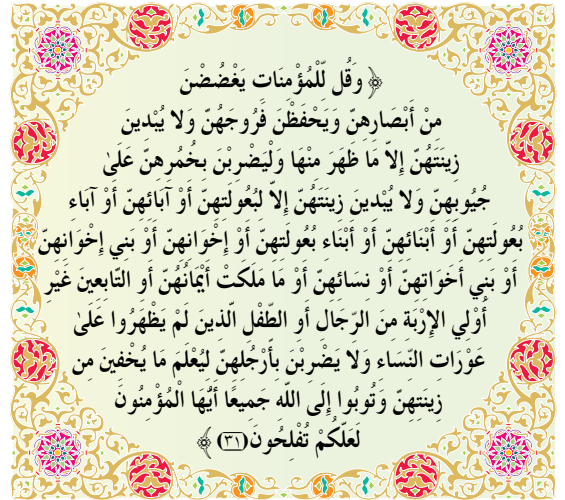 ﴿ وَقُل لِّلْمُؤْمِنَاتِ يَغْضُضْنَ
مِنْ أَبْصَارِهِنَّ وَيَحْفَظْنَ فُرُوجَهُنَّ وَلا يُبْدِينَ
زِينَتَهُنَّ إِلاَّ مَا ظَهَرَ مِنْهَا وَلْيَضْرِبْنَ بِخُمُرِهِنَّ عَلَىٰ
جُيُوبِهِنَّ وَلا يُبْدِينَ زِينَتَهُنَّ إِلاَّ لِبُعُولَتِهِنَّ أَوْ آبَائِهِنَّ أَوْ آبَاءِ
بُعُولَتِهِنَّ أَوْ أَبْنَائِهِنَّ أَوْ أَبْنَاءِ بُعُولَتِهِنَّ أَوْ إِخْوَانِهِنَّ أَوْ بَنِي إِخْوَانِهِنَّ
أَوْ بَنِي أَخَوَاتِهِنَّ أَوْ نِسَائِهِنَّ أَوْ مَا مَلَكَتْ أَيْمَانُهُنَّ أَوِ التَّابِعِينَ غَيْرِ
أُوْلِي الإِرْبَةِ مِنَ الرِّجَالِ أَوِ الطِّفْلِ الَّذِينَ لَمْ يَظْهَرُوا عَلَىٰ
عَوْرَاتِ النِّسَاءِ وَلا يَضْرِبْنَ بِأَرْجُلِهِنَّ لِيُعْلَمَ مَا يُخْفِينَ مِن
زِينَتِهِنَّ وَتُوبُوا إِلَى اللَّهِ جَمِيعًا أَيُّهَا الْمُؤْمِنُونَ
لَعَلَّكُمْ تُفْلِحُونَ(٣١) ﴾